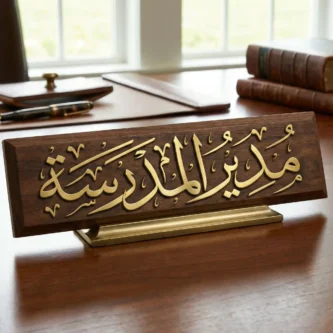 مُدِيرُ المَدرَسَة